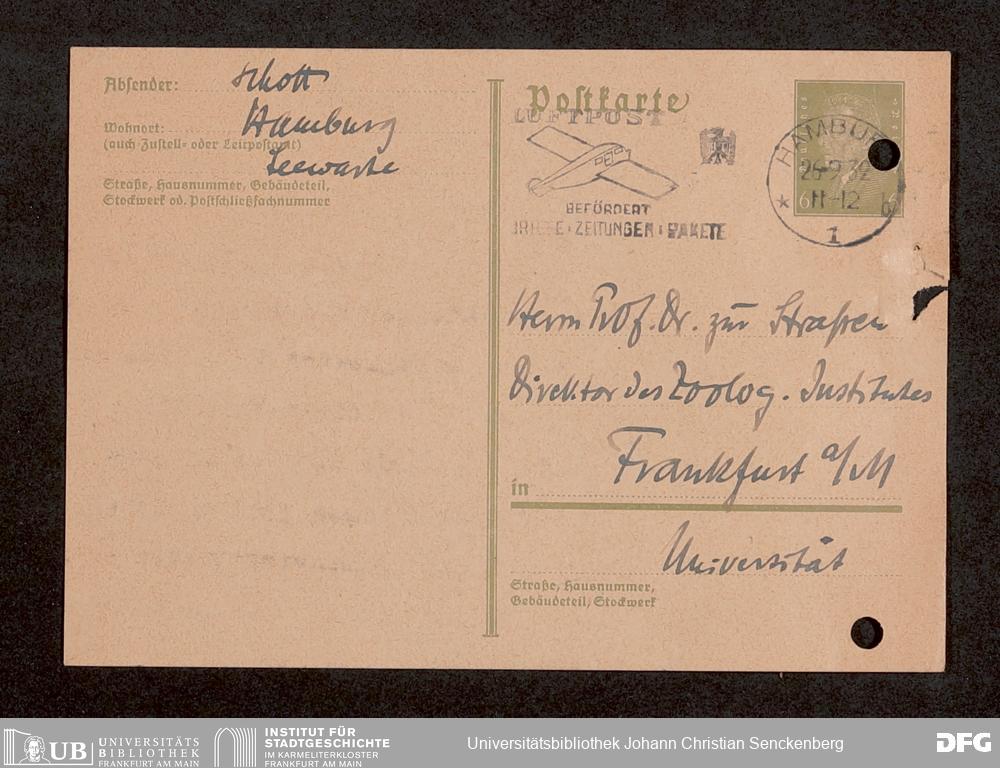 Absender: Schott
Wohnort: Hamburg
(auch Zustell- oder Leitpostamt)
Seewarte
Straße, Hausnummer, Gebäudeteil,
Stockwerk od. Postschließfachnummer
Postkarte
LUFTPOST
BEFÖRDERT
BRIEFE · ZEITUNGEN · PAKETE
HAMBURG
11-12
1
6
Herrn Prof. Dr. zur Strassen
Direktor des Zoolog. Institutes
in Frankfurt a/M
Universität
Straße, Hausnummer,
Gebäudeteil, Stockwerk
UB UNIVERSITÄTS
BIBLIOTHEK
FRANKFURT AM MAIN
INSTITUT FÜR
STADTGESCHICHTE
IM KARMELITERKLOSTER
FRANKFURT AM MAIN
Universitätsbibliothek Johann Christian Senckenberg
DFG